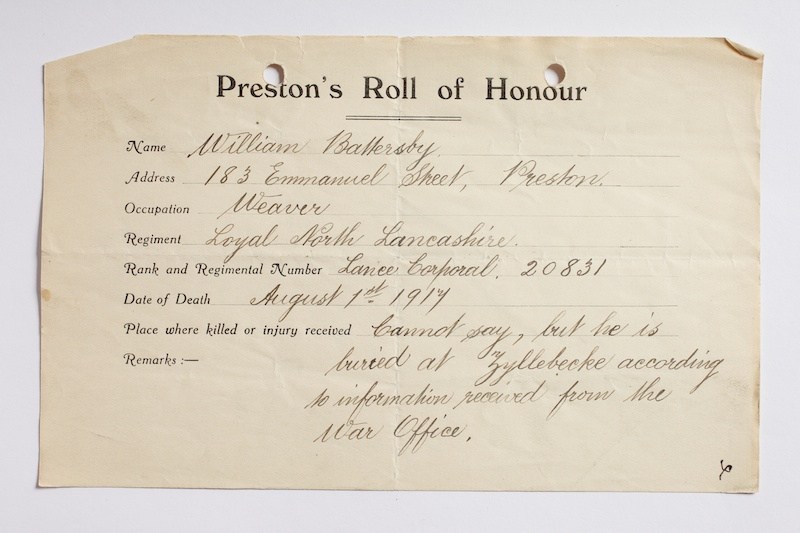 Preston's Roll of Honour
Name William Battersby.
Address 183 Emmanuel Street, Preston.
Occupation Weaver
Regiment Loyal North Lancashire.
Rank and Regimental Number Lance Corporal. 20831
Date of Death August 1st 1917
Place where killed or injury received Cannot say, but he is
Remarks :— buried at Zyllebecke according
to information received from the
War Office.